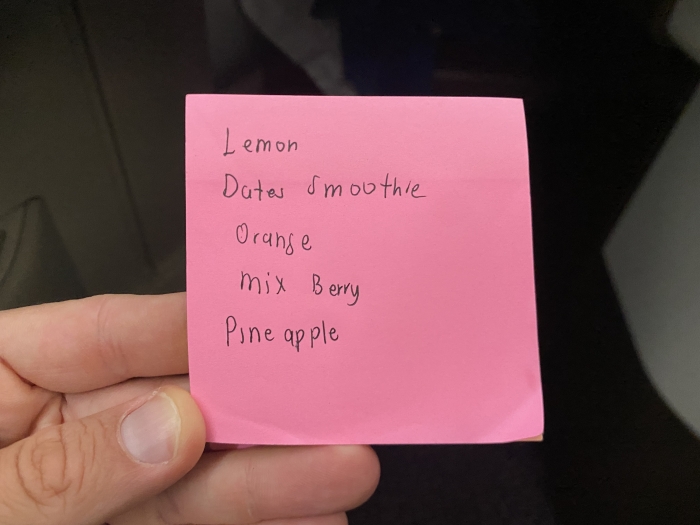 Lemon
Dates Smoothie
Orange
mix Berry
Pine apple